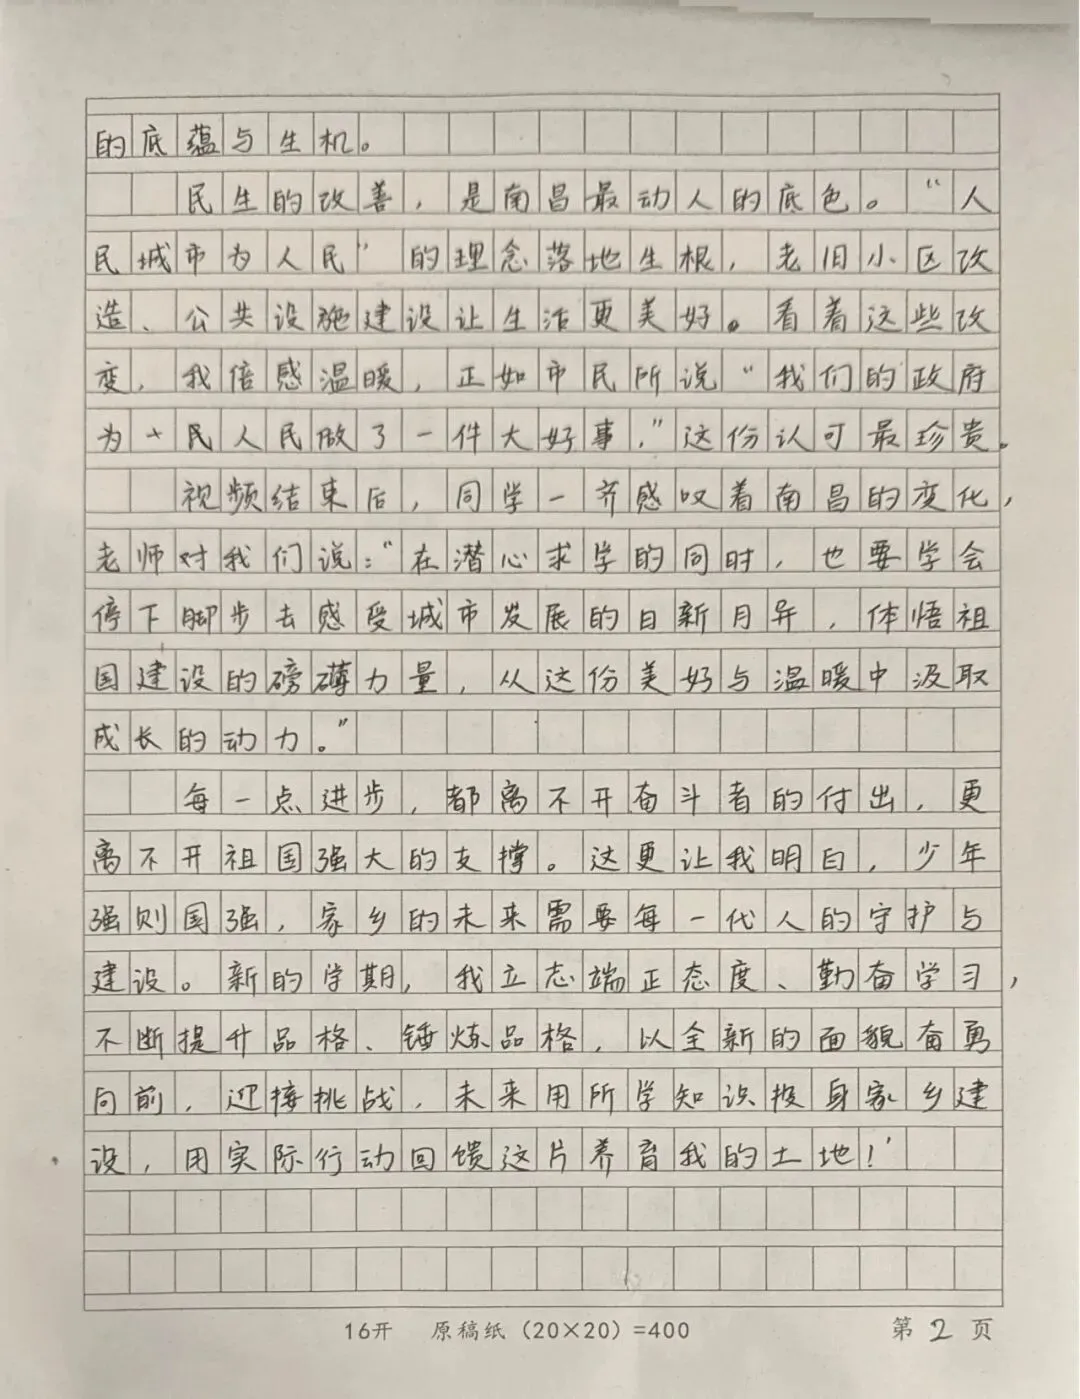 的底蕴与生机。
民生的改善，是南昌最动人的底色。“人
民城市为人民”的理念落地生根，老旧小区改
造、公共设施建设让生活更美好。看着这些改
变，我倍感温暖，正如市民所说“我们的政府
为十民人民做了一件大好事，”这份认可最珍贵。
视频结束后，同学一齐感叹着南昌的变化，
老师对我们说：“在潜心求学的同时，也要学会
停下脚步去感受城市发展的日新月异，体悟祖
国建设的磅礴力量，从这份美好与温暖中汲取
成长的动力。”
每一点进步，都离不开奋斗者的付出，更
离不开祖国强大的支撑。这更让我明白，少年
强则国强，家乡的未来需要每一代人的守护与
建设。新的学期，我立志端正态度、勤奋学习，
不断提升品格、锤炼品格，以全新的面貌奋勇
向前，迎接挑战，未来用所学知识投身家乡建
设，用实际行动回馈这片养育我的土地！
16开 原稿纸（20×20）=400 第 2 页